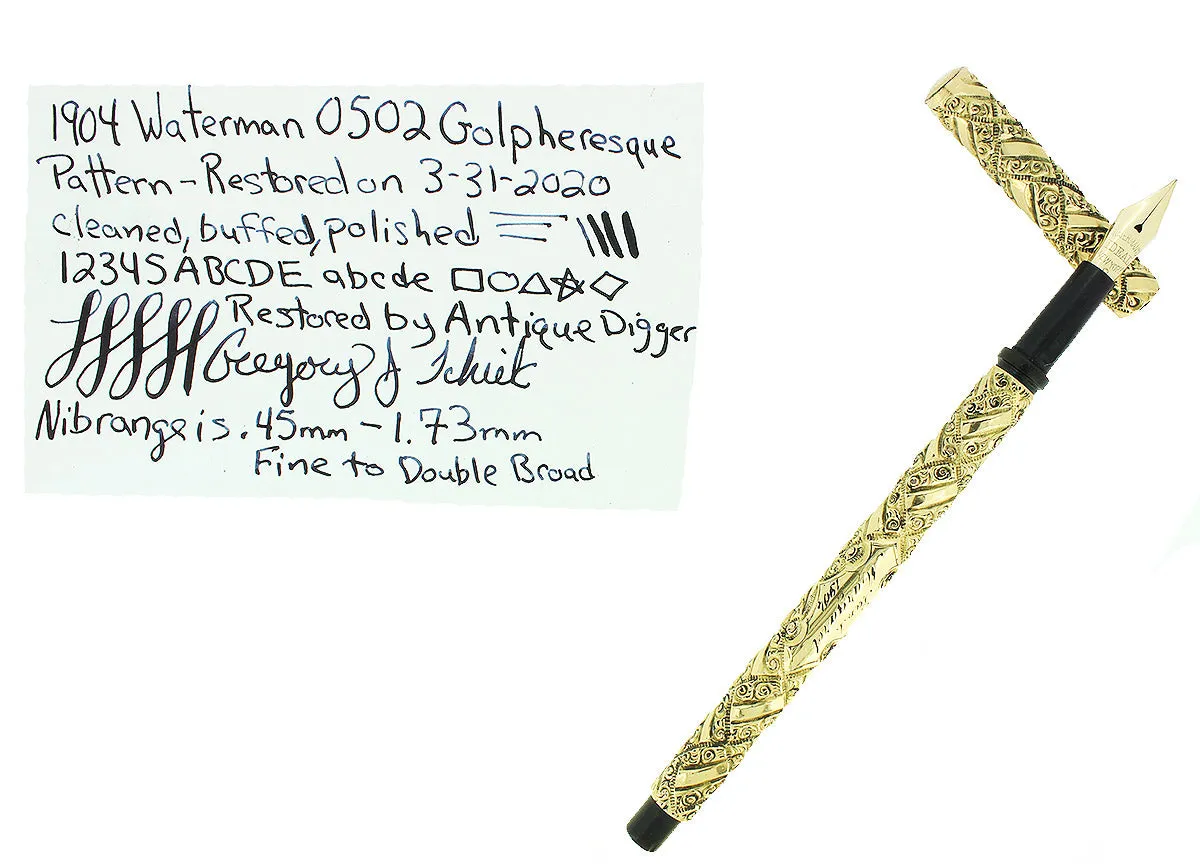 1904 Waterman 0502 Golpheresque
Pattern - Restored on 3-31-2020
cleaned, buffed, polished
12345 ABCDE abcde
Restored by Antique Digger
Gregory J
Nib range is .45mm - 1.73mm
Fine to Double Broad
Margaret
190